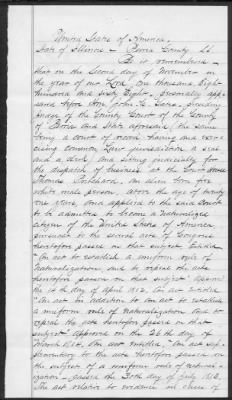 United States of America,
State of Illinois - County Ss.
Be it remembered -
that on the second day of November in
the year of our Lord, one thousand Eight
hundred and sixty Eight, personally appe-
ared before Hon John presiding
judge of the County Court of the County
of and State aforesaid, the same
being a court of record having and exer-
cising common Law jurisdiction a seal
and a clerk, and sitting judicially for
the dispatch of business at the Court House
Thomas an alien born free
white male person, above the age of twenty
one years, and applied to the said Court
to be admitted to become a naturalized
citizen of the United States of America
pursuant to the several acts of Congress
heretofore passed on that subject Entitled
"An act to establish a uniform rule of
Naturalization, and to repeal the acts
heretofore passed on that subject" approved
the 14th day of April 1802, An act Entitled
"An act in addition to An act to establish
a uniform rule of naturalization and to
repeal the acts heretofore passed on that
subject" approved on the 26th day of
March 1804, An act entitled "An act sup-
plementary to the acts heretofore passed on
the subject of a uniform rule of naturali-
zation" - passed the 30th day of July 1813,
The act relative to evidence in cases of